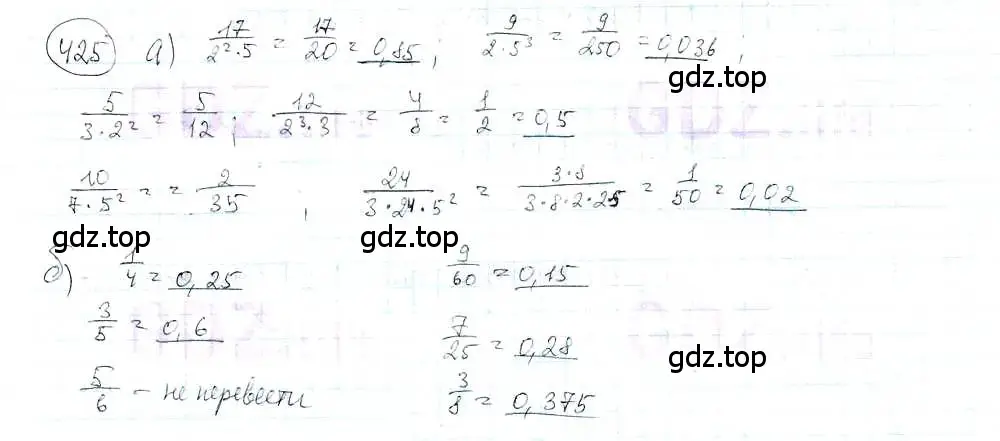 425 а) 17/(2²·5) = 17/20 = 0,85; 9/(2·5³) = 9/250 = 0,036;
gdz.top
5/(3·2²) = 5/12; 12/(2³·3) = 4/8 = 1/2 = 0,5
gdz.top
10/(7·5²) = = 2/35; 24/(3·24·5²) = 3·8/(3·8·2·25) = 1/50 = 0,02
gdz.top gdz.top
б) 1/4 = 0,25 9/60 = 0,15
3/5 = 0,6 7/25 = 0,28
gdz.top
5/6 - не перевести 3/8 = 0,375
gdz.top